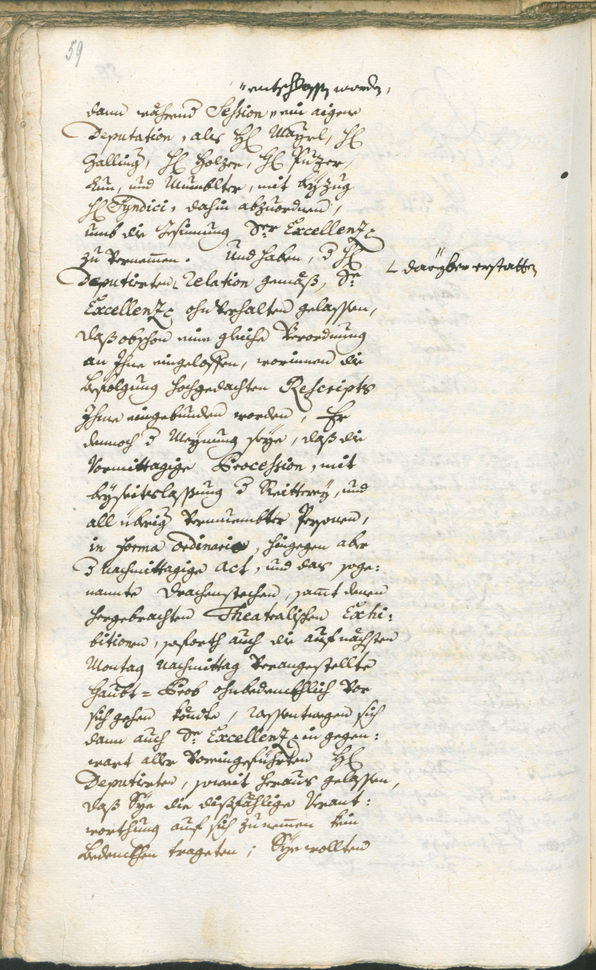 59
"entschlossen worden,
dann während Session, ein aigene
Deputation, als H: Mayrl, H:
Zalling, H: Holzer, H: Putzer,
Kun, und Mumblter, mit beyzug
H: Syndici, dahin abzuordnen,
umb die Gesinnung Sr: Excellenz:
zu vernemen. Und haben, d H:
Deputierten Relation gemäß, Se:
∟ darüber erstatten
Excellenz: ohnverhalten gelassen,
daß obschon eine gleiche Verordnung
an Ihne eingeloffen, worinnen die
befolgung hochgedachten Rescripts
Ihme eingebunden worden, Er
dennoch d Meynung seye, daß die
Vormittagige Procession, mit
beyseitslassung d Reitterey, und
all übrig Vermumbter Personen,
in forma ordinaria, hingegen aber
d Nachmittagige Act, und das soge:
nannte Drachenstechen, samt denen
hergebrachten Theatralischen Exhi:
bitionen, soforth auch die auf nächsten
Montag Nachmittag Veranstellte
Haubt=Prob ohnbedenkhlich vor
sich gehen könte, lassentwegen sich
dann auch Se: Excellenz: in gegen:
wart aller Voreingeführten H:
Deputierten, soweit heraus gelassen,
daß Sye die dißfählige Verant:
worthung auf sich zu nemen kein
bedenkhen trageten; Sye wollten